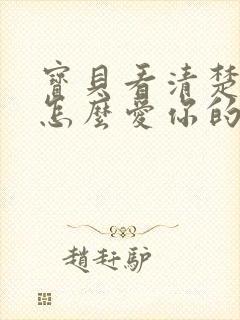 寶貝看清楚
怎麼愛你的
趙赶驴